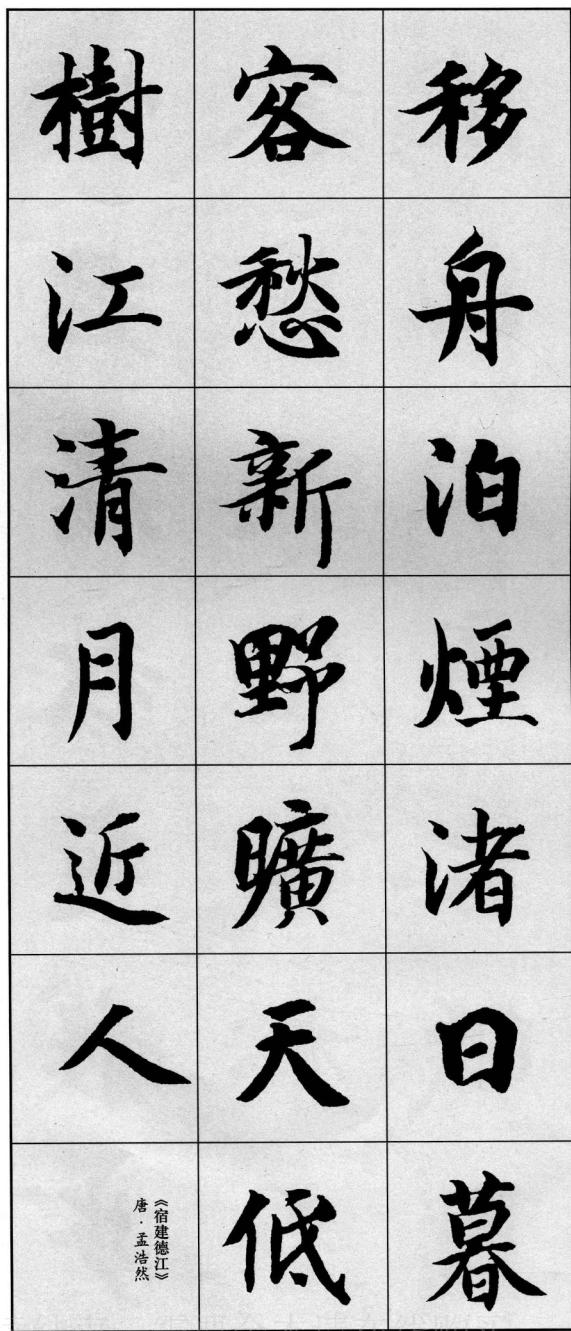 移舟泊煙渚日暮
客愁新野曠天低
樹江清月近人
《宿建德江》
唐·孟浩然